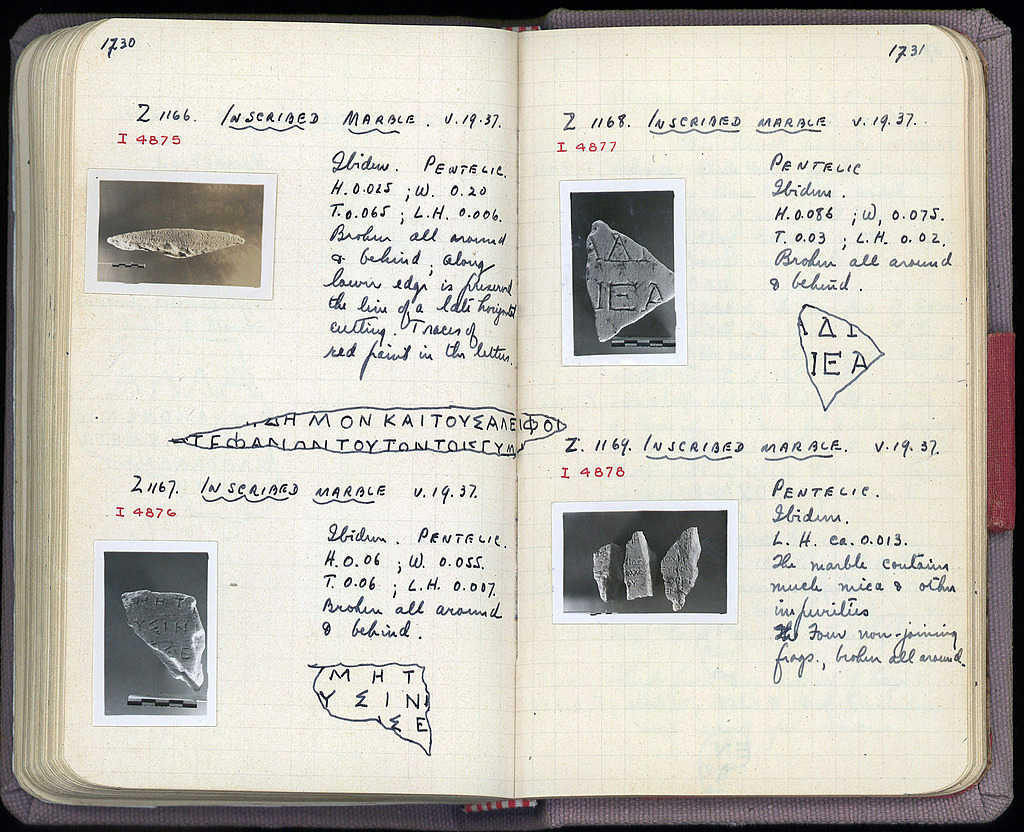 1730
Z 1166. INSCRIBED MARBLE. V.19.37.
I 4875
Ibidem. PENTELIC.
H. 0.025 ; W. 0.20
T. 0.065 ; L.H. 0.006.
Broken all around
& behind ; along
lower edge is preserved
the line of a late horizontal
cutting. Traces of
red paint in the letters.
ΗΜΟΝΚΑΙΤΟΥΣΑΛΕΙΦΟΙ
ΤΕΦΑΝΙΩΝΤΟΥΤΩΝΤΟΙΣΓΥΜ
Z 1167. INSCRIBED MARBLE V.19.37.
I 4876
Ibidem. PENTELIC.
H. 0.06 ; W. 0.055.
T. 0.06 ; L.H. 0.007.
Broken all around
& behind.
ΜΗΤ
ΥΣΙΝ
ΣΕ
ΜΗΤ
ΥΣΙΝ
ΣΕ
1731
Z 1168. INSCRIBED MARBLE V.19.37.
I 4877
PENTELIC
Ibidem.
H. 0.086 ; W. 0.075.
T. 0.03 ; L.H. 0.02.
Broken all around
& behind.
Δ
ΙΕΑ
ΑΔΙ
ΙΕΑ
Z. 1169. INSCRIBED MARBLE. V.19.37.
I 4878
PENTELIC.
Ibidem.
L.H. ca. 0.013.
The marble contains
much mica & other
impurities
Four non-joining
frags., broken all around.